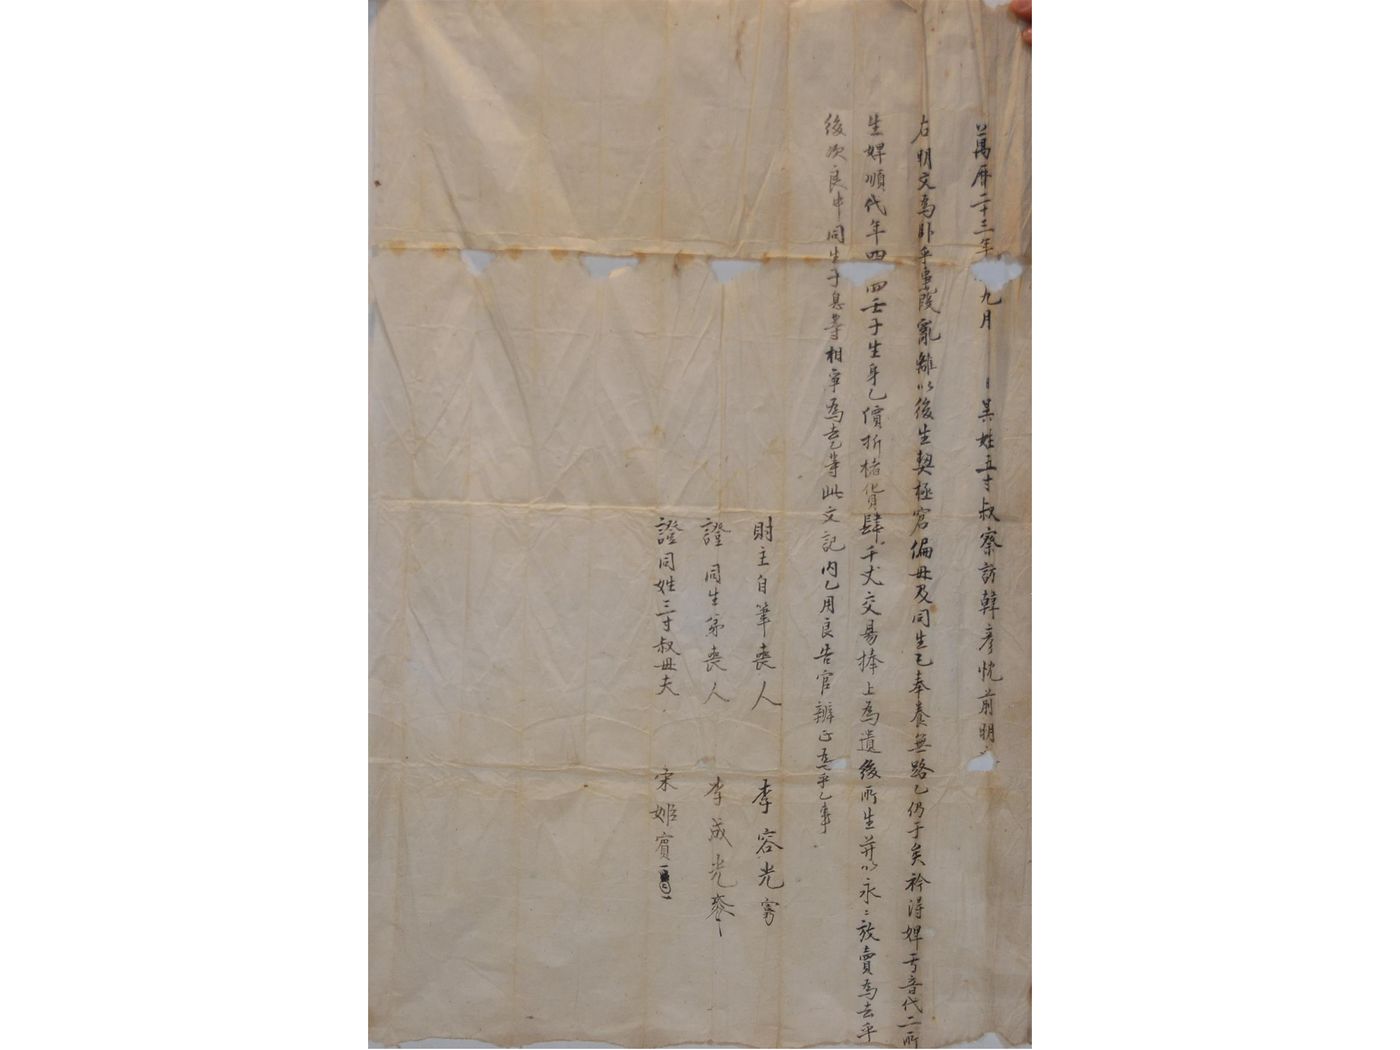 萬曆二十三年 九月 日異姓五寸叔察訪韓彦忱前明
右明文爲卧乎事段亂離以後生契極窘偏母及同生乙奉養無路乙仍于矣衿得婢亐音代二所
生婢順代年四 四壬子生身乙價折楮貨肆千丈交易捧上爲遣後所生并以永永放賣爲去乎
後次良中同生子息等相爭爲去等此文記內乙用良告官辨正爲乎乙事
財主自筆喪人 李容光
證同生弟喪人 李成光
證同姓三寸叔母夫 宋姬賓